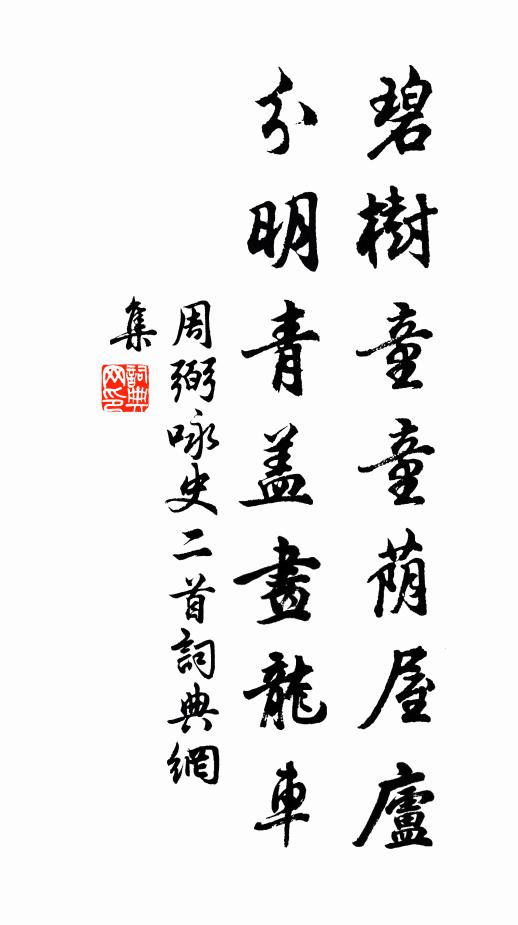 碧樹童童荫屋廬
分明青盖畫龍車
周弼咏史二首詞典網
集
詞典
网印